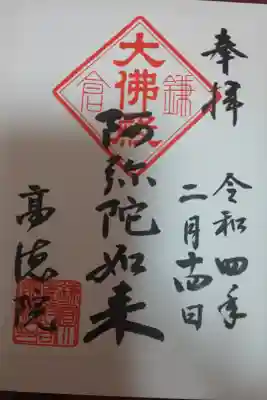 奉拝
令和四年
二月十四日
鎌倉
大佛殿
阿弥陀如来
高徳院